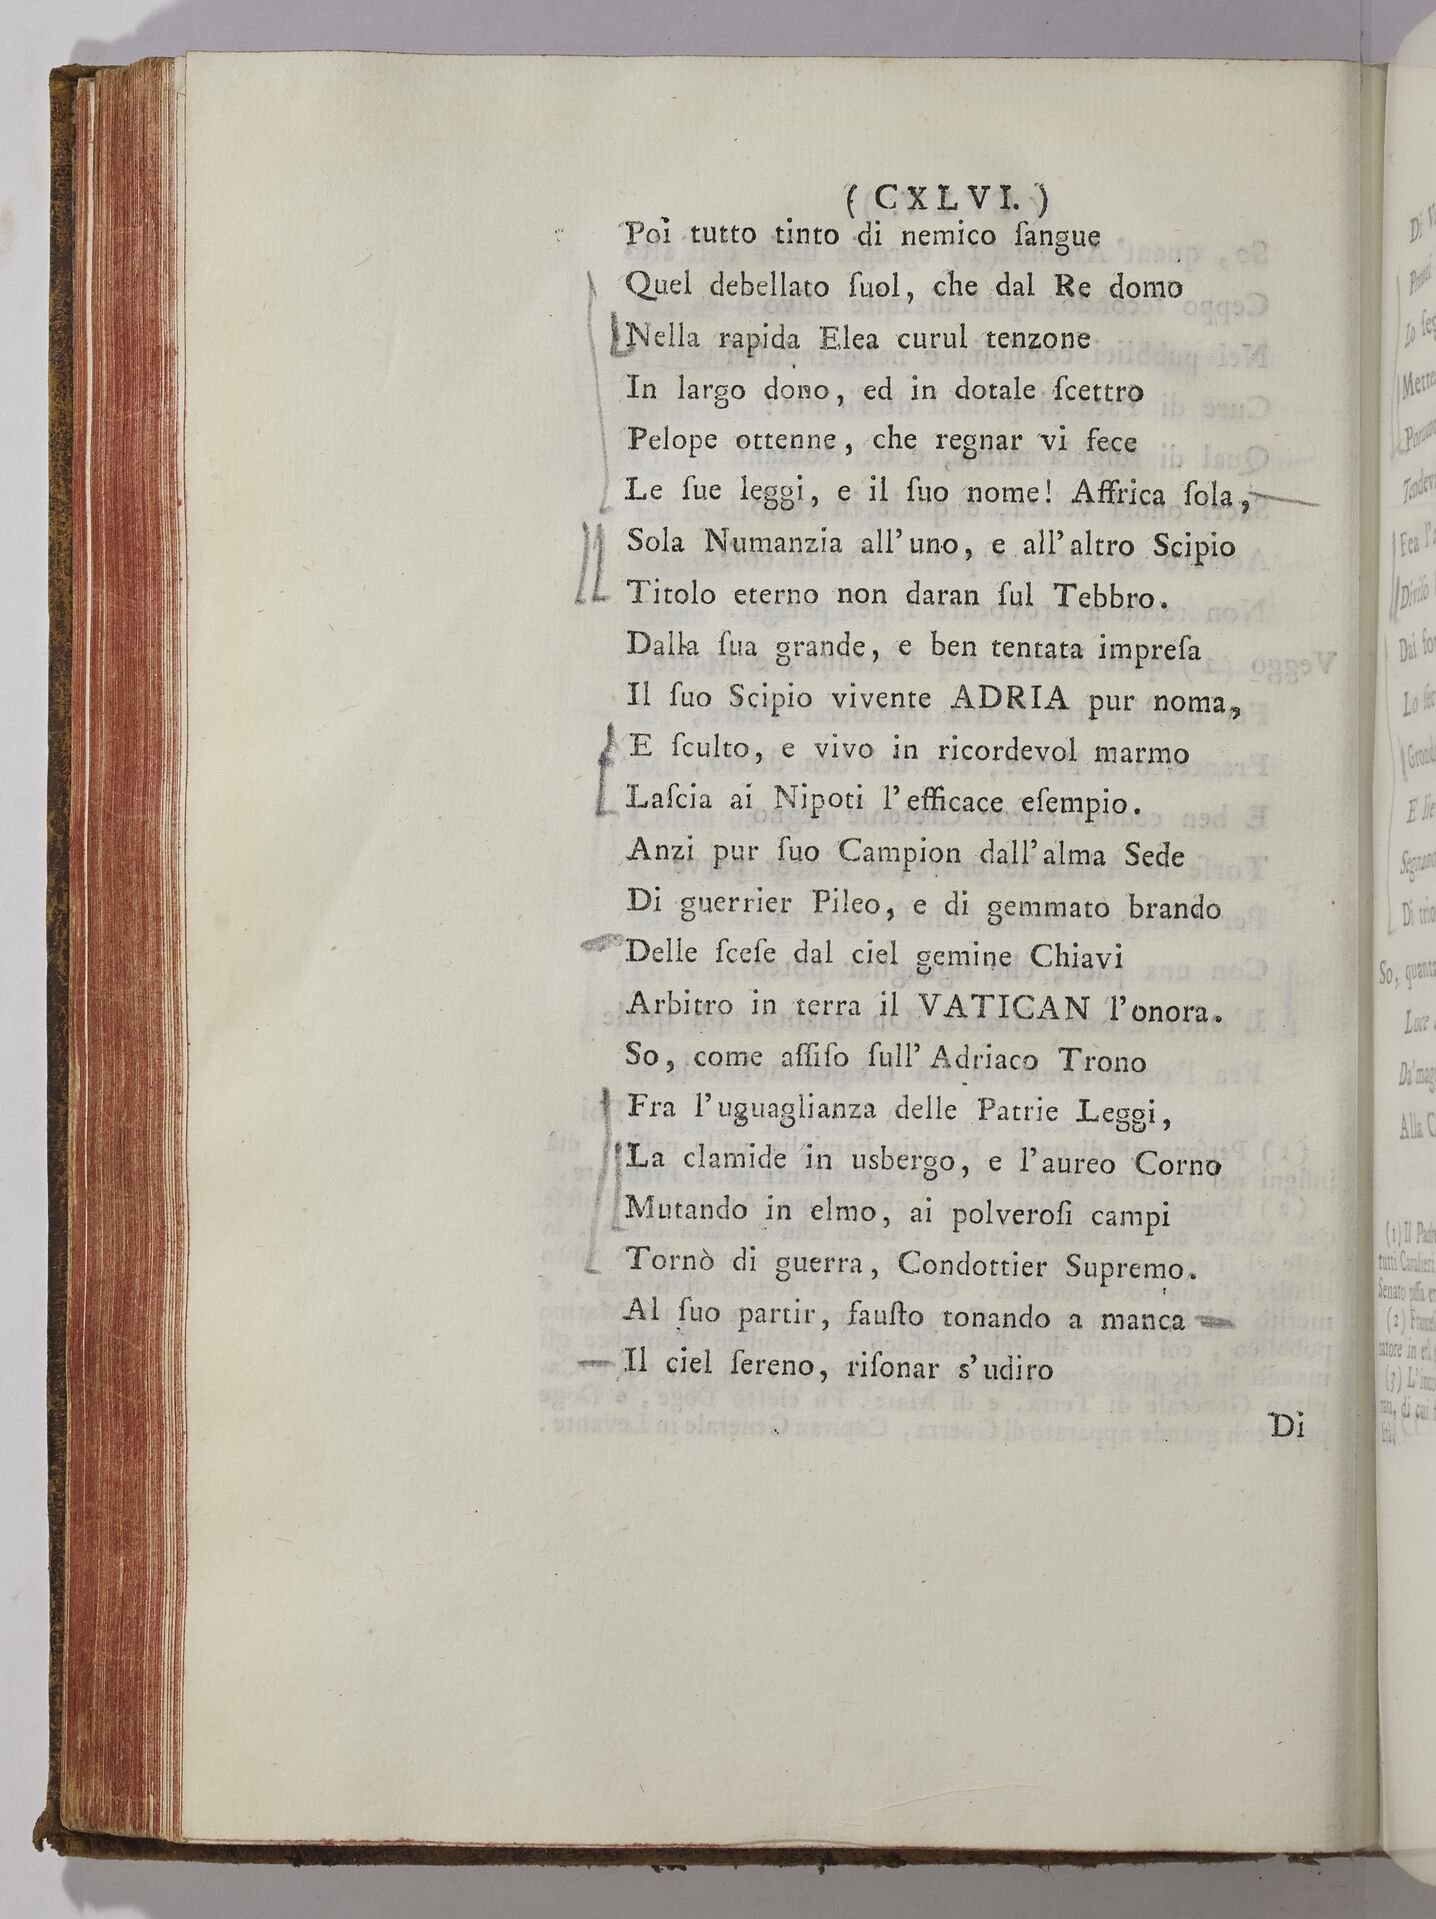 ( CXLVI. )
Poi tutto tinto di nemico ſangue
Quel debellato ſuol, che dal Re domo
Nella rapida Elea curul tenzone
In largo dono, ed in dotale ſcettro
Pelope ottenne, che regnar vi fece
Le ſue leggi, e il ſuo nome! Affrica ſola,
Sola Numanzia all'uno, e all'altro Scipio
Titolo eterno non daran ſul Tebbro.
Dalla ſua grande, e ben tentata impreſa
Il ſuo Scipio vivente ADRIA pur noma,
E ſculto, e vivo in ricordevol marmo
Laſcia ai Nipoti l'efficace eſempio.
Anzi pur ſuo Campion dall'alma Sede
Di guerrier Pileo, e di gemmato brando
Delle ſceſe dal ciel gemine Chiavi
Arbitro in terra il VATICAN l'onora.
So, come aſſiſo ſull' Adriaco Trono
Fra l'uguaglianza delle Patrie Leggi,
La clamide in usbergo, e l'aureo Corno
Mutando in elmo, ai polveroſi campi
Tornò di guerra, Condottier Supremo.
Al ſuo partir, fauſto tonando a manca
Il ciel ſereno, riſonar s'udiro
Di
Di
Io
Mette
Fea l'a
Diviſo
Dai
Lo
E
Di
So, quant
Luce
Da'
Alla C
(1) Il
tutti Cavalieri
Senato
(2)
(3) L'
di cui